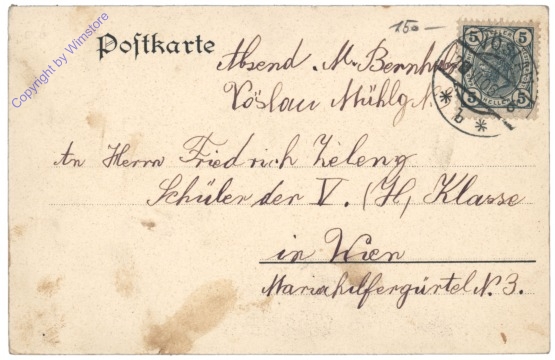 150-
Postkarte
Absend. M. Bernh
Vöslau Mühlg.
5 5
VÖSL
5 HELLER 5
* b *
An Herrn Friedrich Zeleny
Schüler der V. (H) Klasse
in Wien
Mariahilfergürtel N. 3.
Copyright by Wimstore